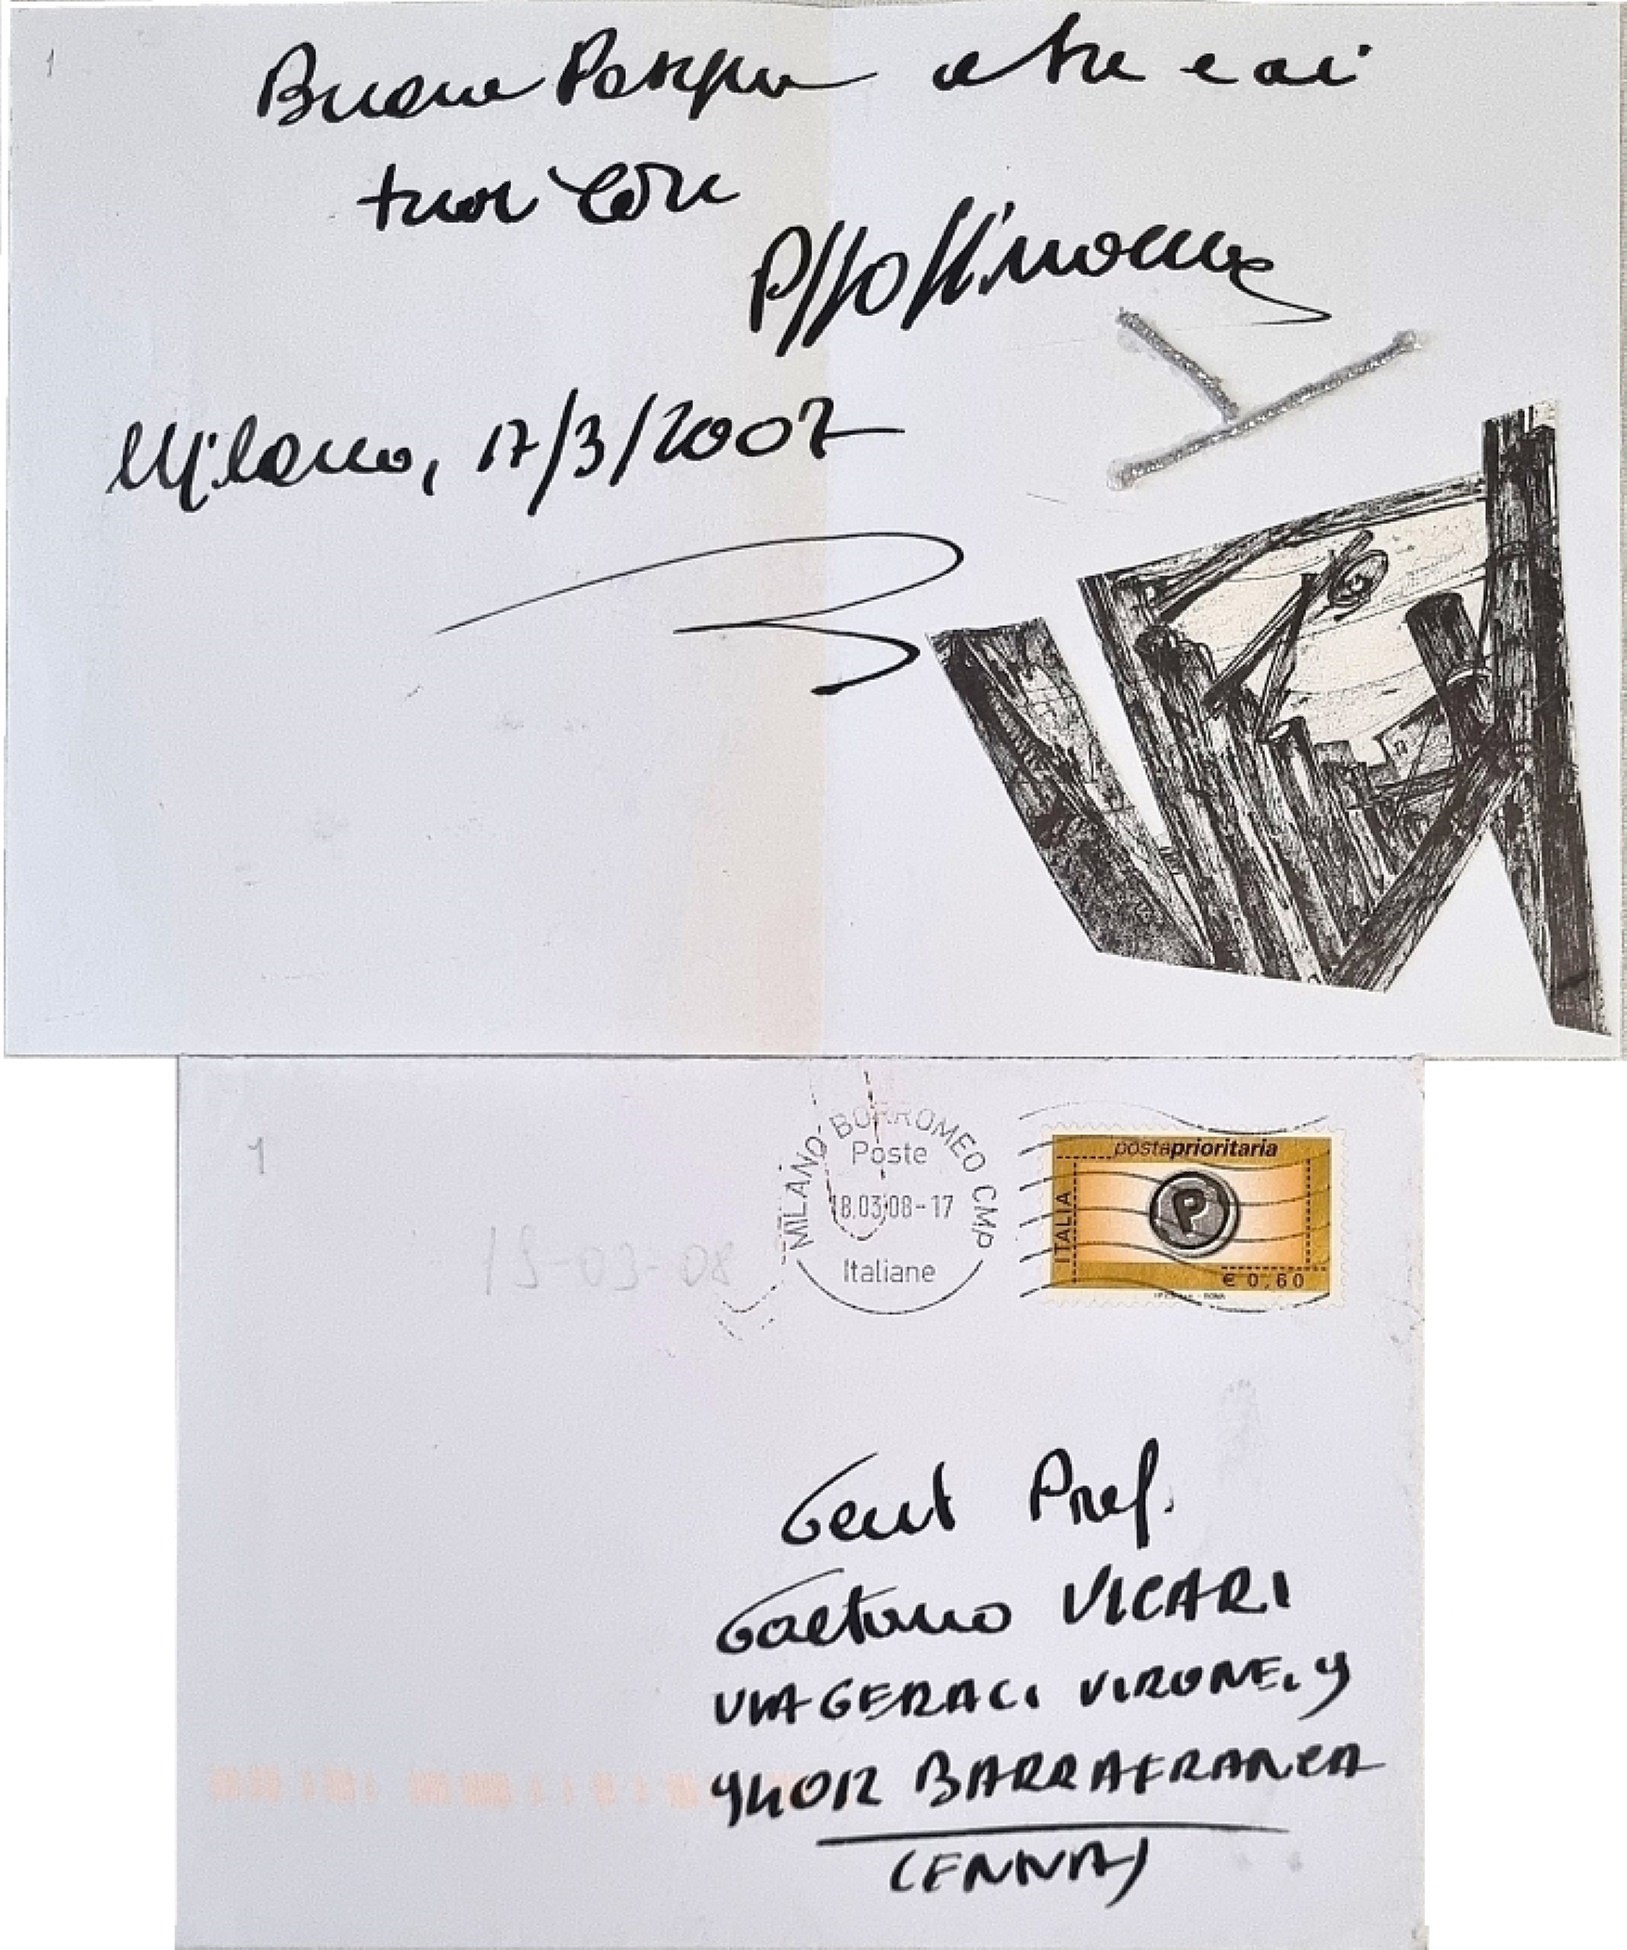 1
Buona Pasqua a te e ai
tuoi cari
Milano, 17/3/2007
1
MILANO BORROMEO CMP
Poste
18.03.08-17
Italiane
postaprioritaria
P
ITALIA
€ 0,60
19-03-08
Gent Prof.
Gaetano VICARI
VIA GERACI VIRONE, 9
94012 BARRAFRANCA
(ENNA)